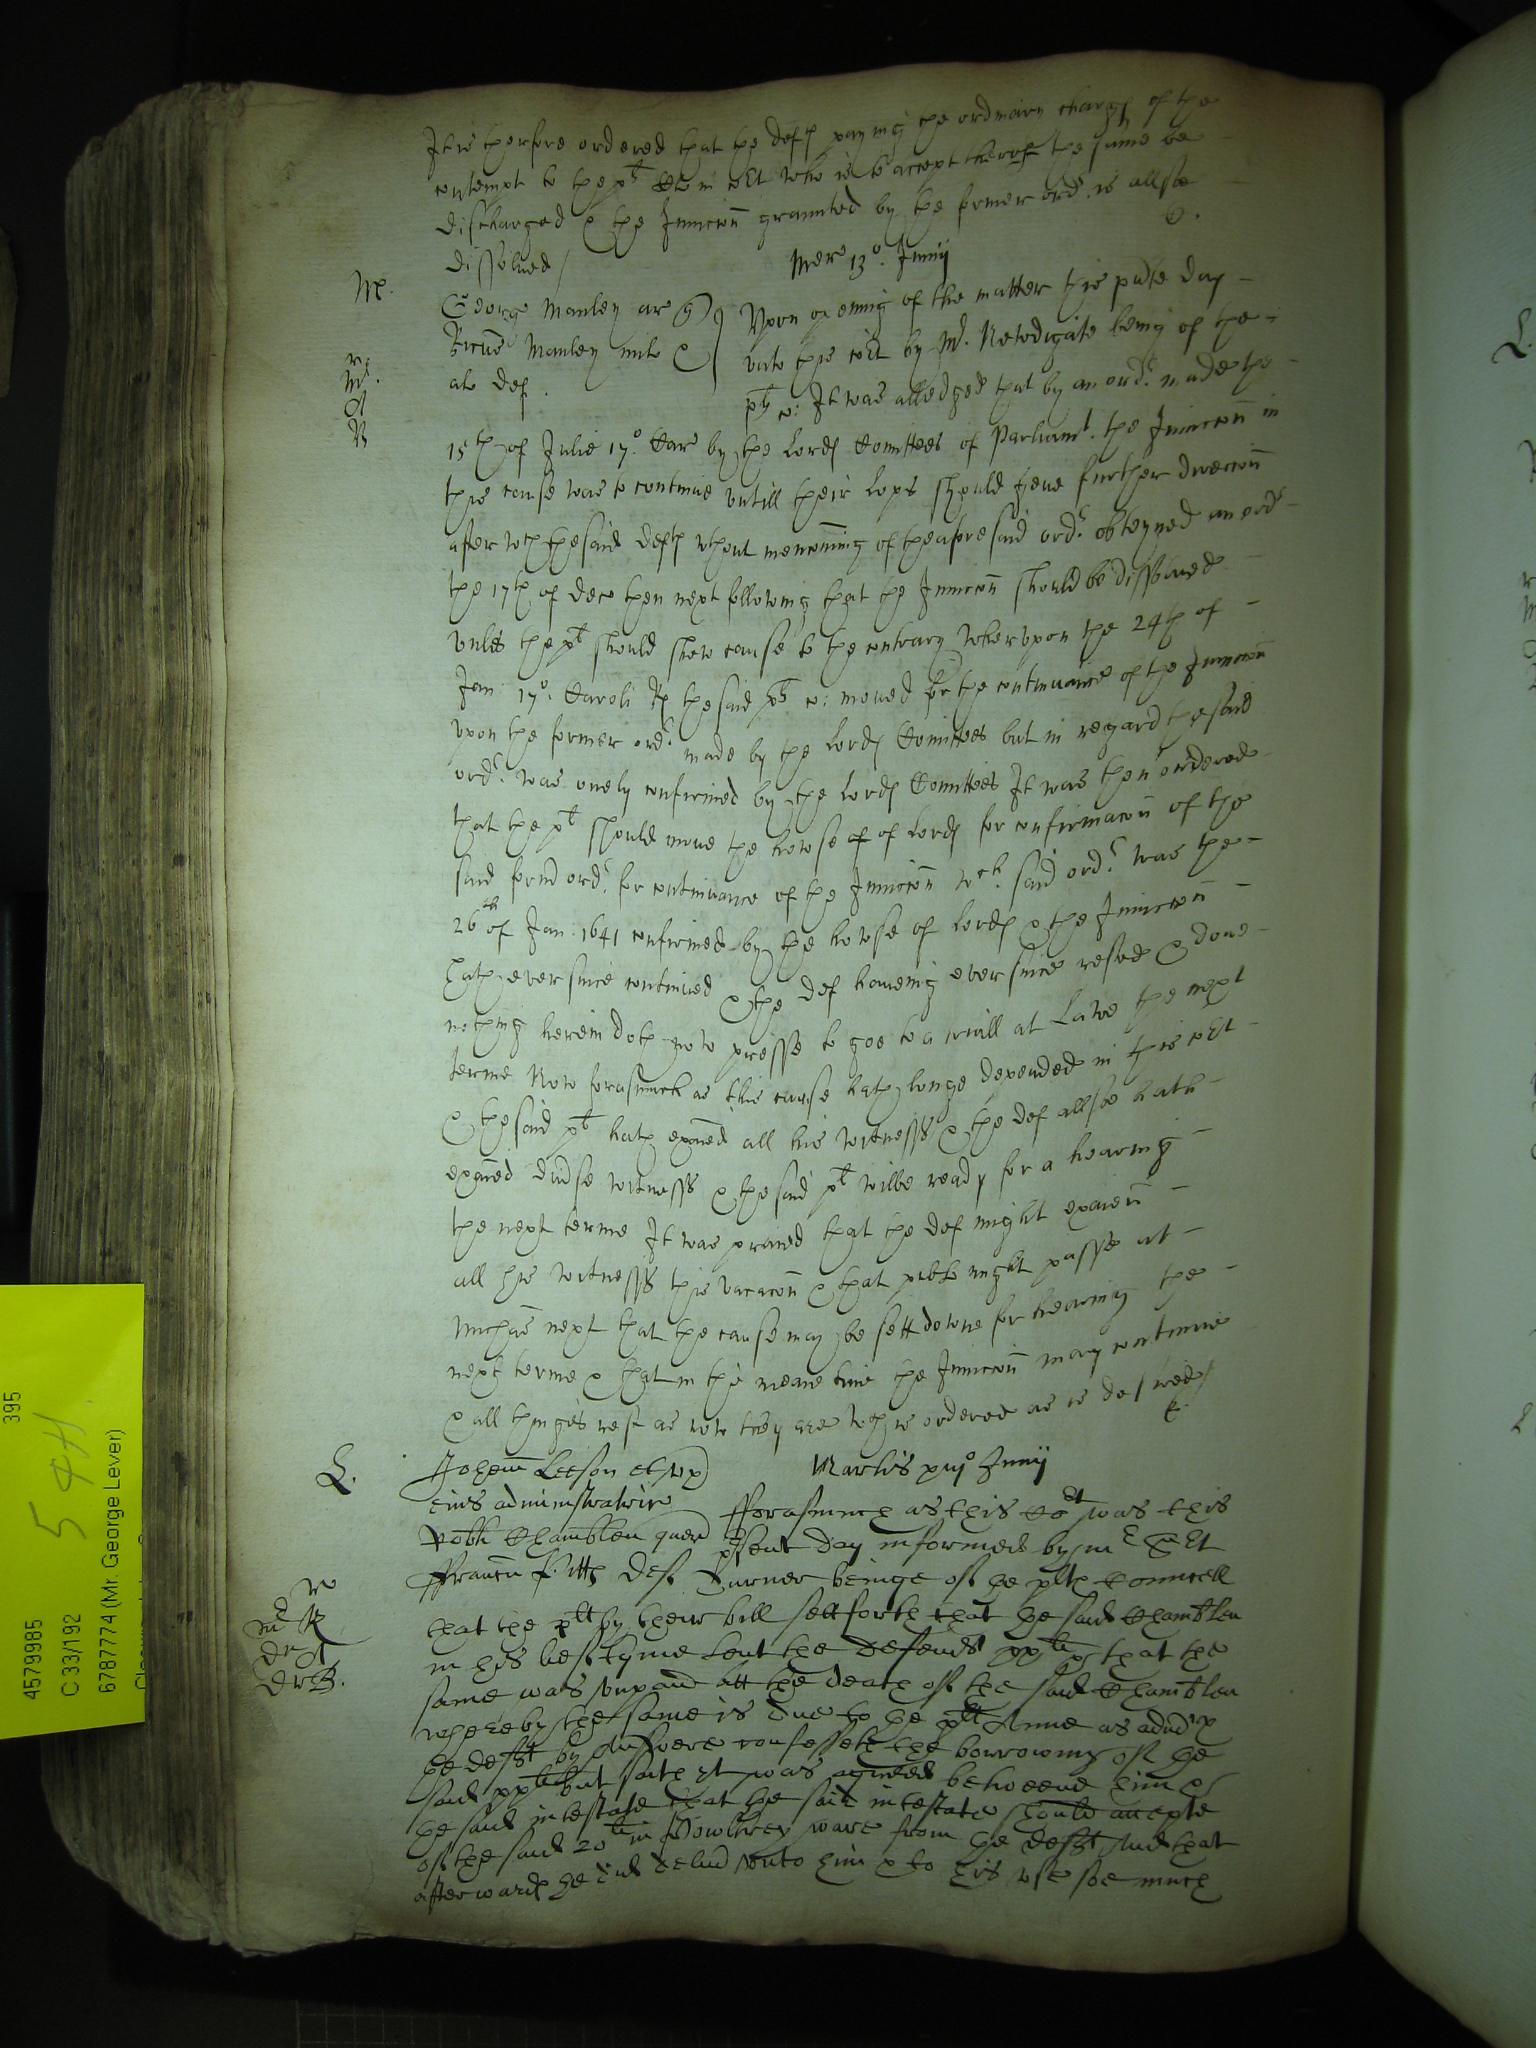 It is therfore ordered that the defts paying the ordinary charges of the
contempt to the plt Clk in Cort who is to accept therof the same be
discharged & the Iniuncion graunted by the former ordr. is allsoe
dissolued
Merc 13o. Junij
M.
George Manley ar
Upon opening of the matter this pnte day
Manley milt &
unto this Cort by Mr. Newdigate being of the
al def.
plts co: It was alledged that by an ordr. made the
15th of Julie 17o. Car by the Lords Comittees of Parliamt. the Iniuncion in
this cause was to continue untill their Lops should geue further direccon
after wch the said defts wthout mencioning of the aforesaid ordr. obteyned an ordr
the 17th of Dec then next following that the Iniuncion should be dissolued
unles the plt should shew cause to the contrary Wherupon the 24th of
Jan 17o. Caroli R the said plts co: moued for the continuance of the Iniuncion
upon the former ordr. made by the Lords Comittees but in regard the said
ordr. was onely confirmed by the Lords Comittees It was then ordered
that the plt should moue the howse of of Lords for confirmacon of the
said former ordr. for continuance of the Iniuncion wch. said ordr. was the
26th of Jan 1641 confirmed by the howse of Lords & the Iniuncion
hath euer since continued & the def haueing euer since rested & done
nothing herein doth now presse to goe to a triall at Lawe the next
terme Now forasmuch as this cause hath longe depended in this Cort
& the said plt hath exaied all his witnesses & the def allsoe hath
exaied diuse witnesses & the said plt wilbe ready for a hearing
the next terme It was praied that the def might exaien
all his witnesses this vacacon & that publ might passe at
Michas next that the cause may be sett downe for hearing the
next terme & that in the meane time the Iniuncion may continue
& all things rest as now they are wch is ordered as is desired
L.
Johem Leeson et ux
Martis xiijo Junij
eius administratrix
fforasmuch as this Cort was this
Robti Chamblen quer
psent day informed by Mr
ffrancu Pitts deft
Turner beinge of the plts Councell
that the plts by their bill sett forth that the said Chamblen
in his life tyme lent the defendt xxli & that the
same was unpaid att the death of the said Chamblen
whereby the same is due to the plt Anne as admx
the deft by Answere confesseth the borrowing of the
said xxli but saith it was agreed betweene him &
the said intestate that the said intestate should accepte
of the said 20li in ware from the deft And that
afterwards he did deliu unto him & to his use soe much
4579985
C 33/192
6787774 (Mr. George Lever)
395